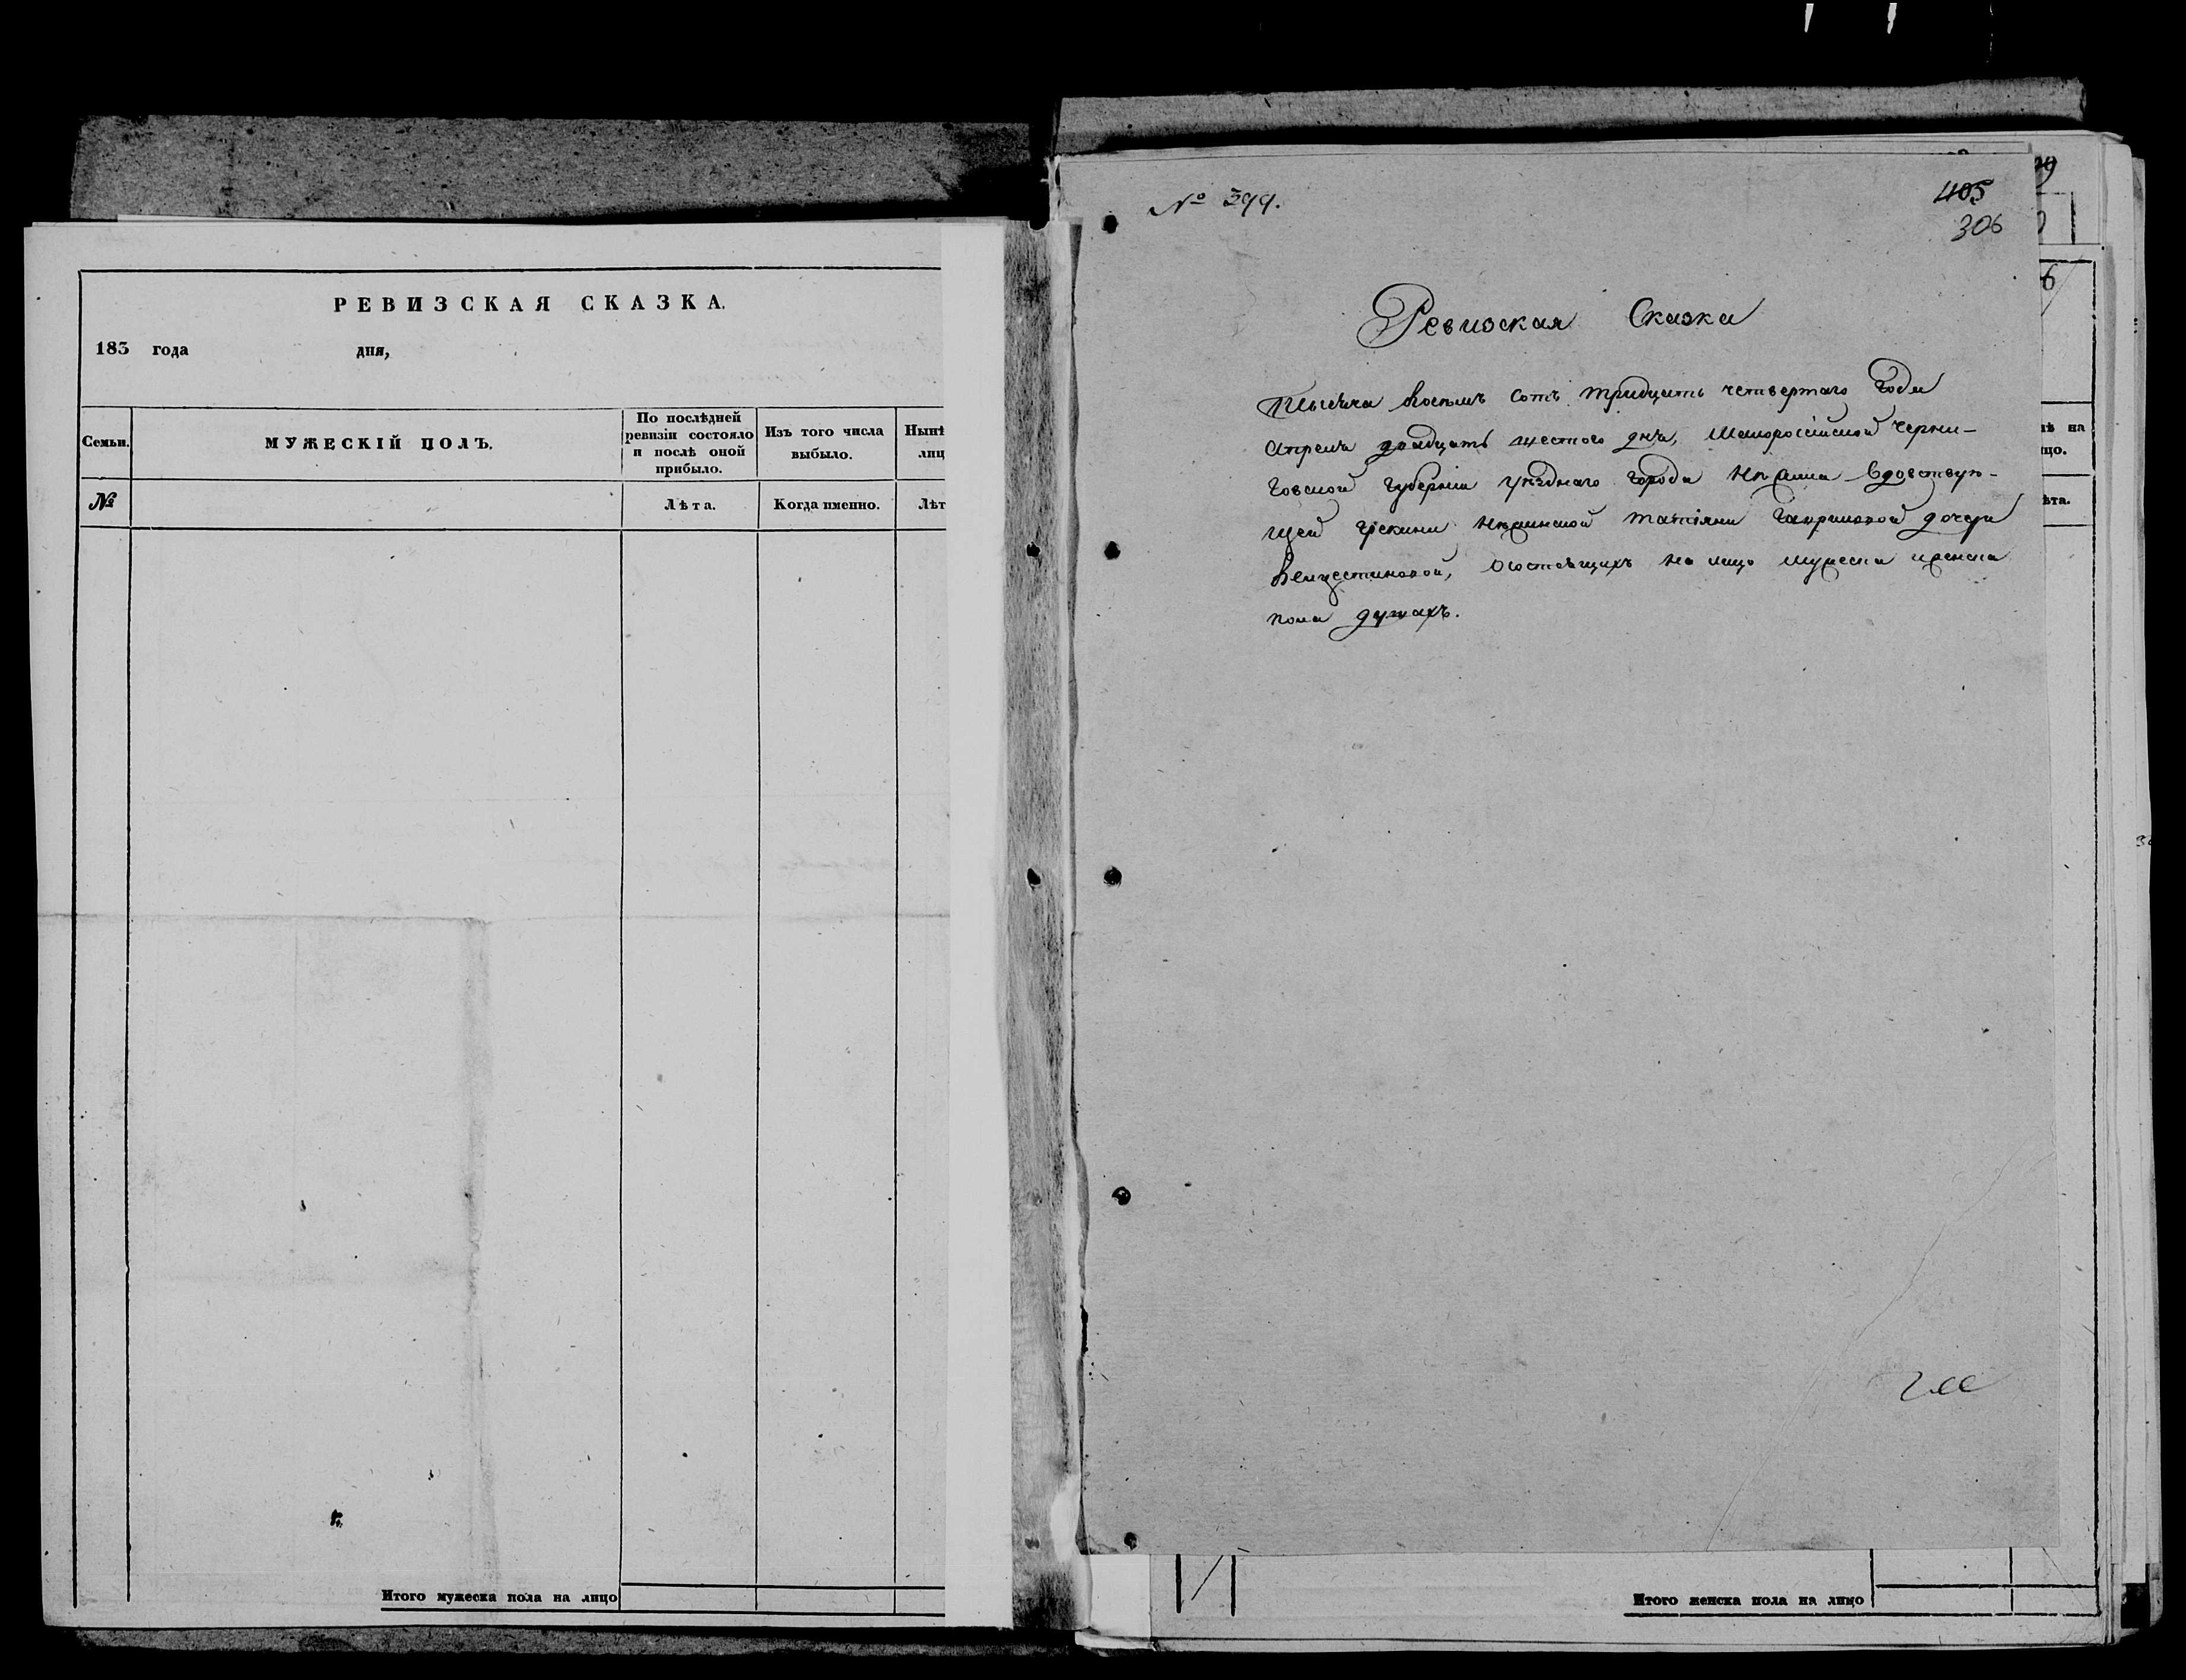 РЕВИЗСКАЯ СКАЗКА.
183 года дня,
Семьи.
МУЖЕСКІЙ ПОЛЪ.
По послѣдней
ревизіи состояло
и послѣ оной
прибыло.
Изъ того числа
выбыло.
Нынѣ
лиц
№
Лѣта.
Когда именно.
Лѣт
Итого мужеска пола на лицо
№ 399.
405
306
Ревизская Сказка
Тысяча восемь сотъ тридцать четвертаго года
Апреля двадцать шестого дня, Малороссійской Черни-
говской Губерніи уѣзднаго города Нѣжина вдовствую-
щей грекини Нѣжинской Татіяны Гавриловой дочери
о состоящихъ на лицо мужеска и женска
пола душахъ.
ѣ на
цо.
ѣта.
6
Итого женска пола на лицо